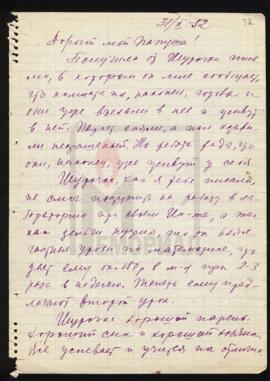 31/X 52
32
Дорогой мой Папуша!
Получила от Шурочки письмо,
в котором он мне сообщает,
что комната их, наконец, готова и
они уже въехали в нее и живут
в ней.
рада, что
они, наконец, уже живут у себя
Шурочка, как я тебе писала,
не смог поступить на работу в лабораторию
при своем Ин-те, а так
как деньги нужны, то он взял
частные уроки по математике, что
дает ему ок. 150 р в м-ц при 2-3
раза в неделю. Теперь ему предлагают
второй урок.
Шурочка хороший парень.
Хороший сын и хороший
Все успевает и учится на отлично